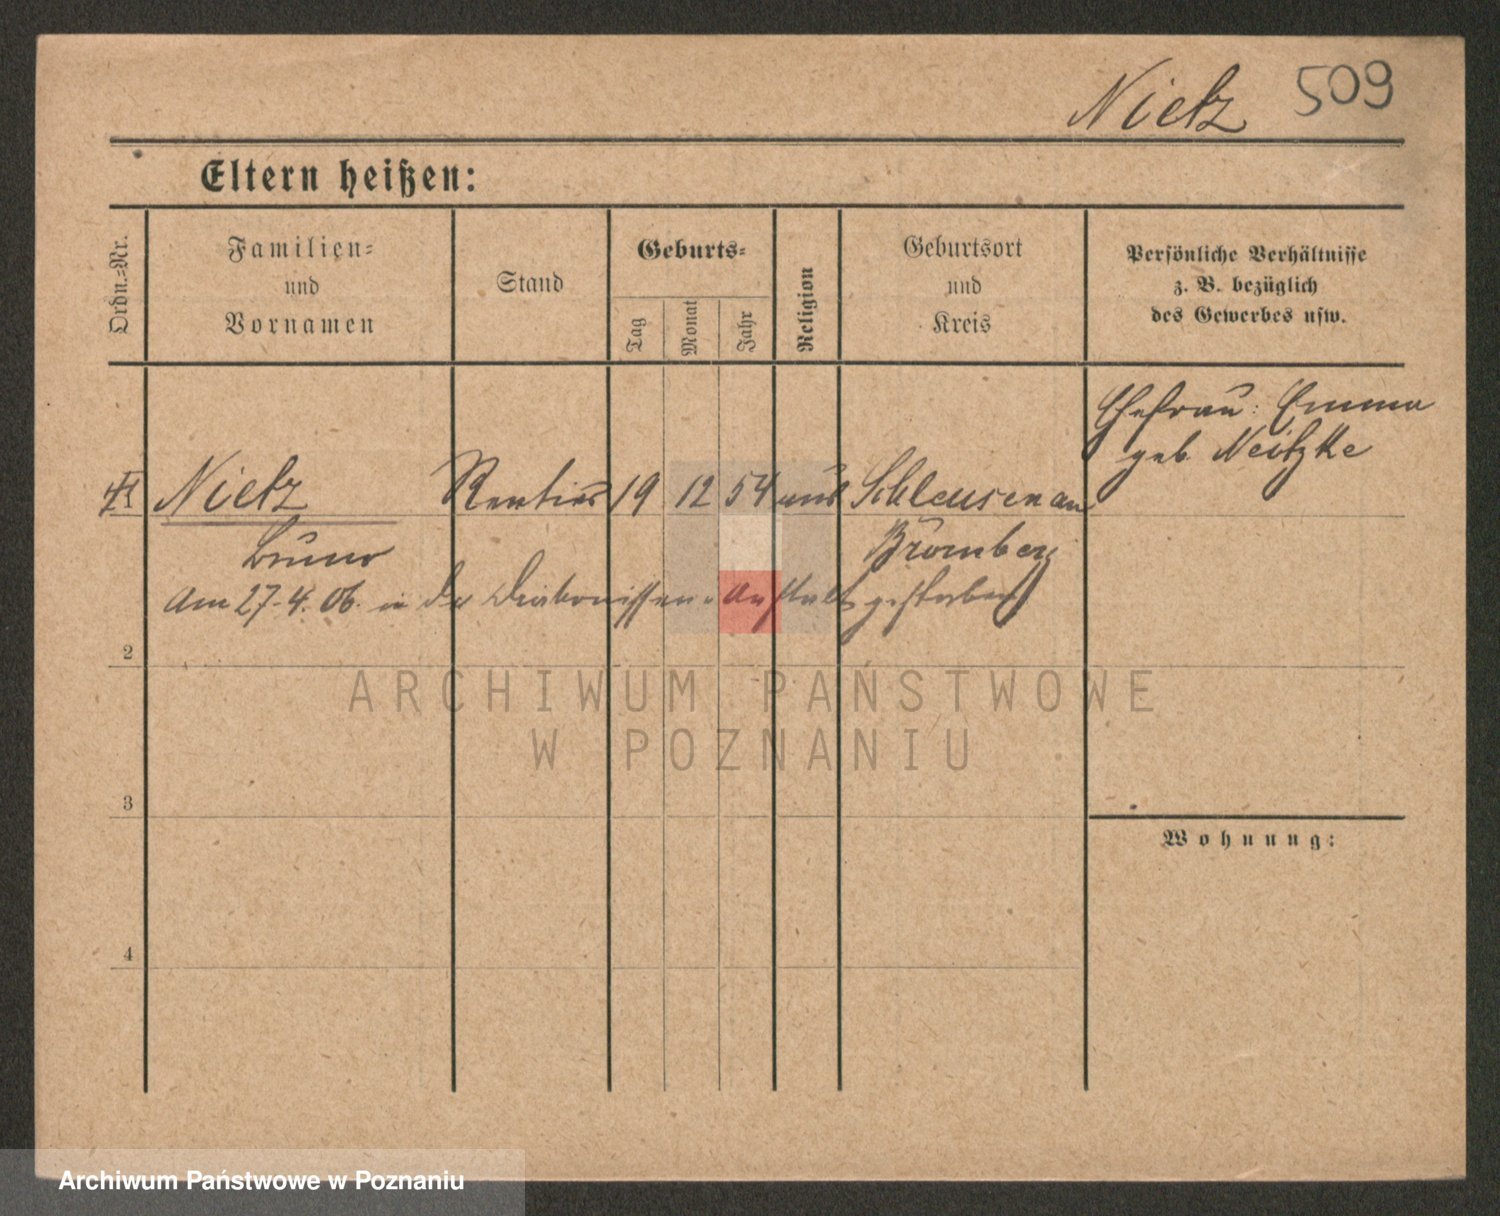 Nietz 509
Eltern heißen:
Ordn.=Nr.
Familien=
und
Vornamen
Stand
Geburts=
Tag
Monat
Jahr
Religion
Geburtsort
und
Kreis
Persönliche Verhältnisse
z. B. bezüglich
des Gewerbes usw.
Ehefrau: Emma
geb. Neitzke
Nietz Rentier 19 12 54 Schleusenau
Bruno Bromberg
Am 27.4.06. in der Diakonissen-Anstalt gestorben
2
3
4
Wohnung:
ARCHIWUM PAŃSTWOWE
W POZNANIU
Archiwum Państwowe w Poznaniu